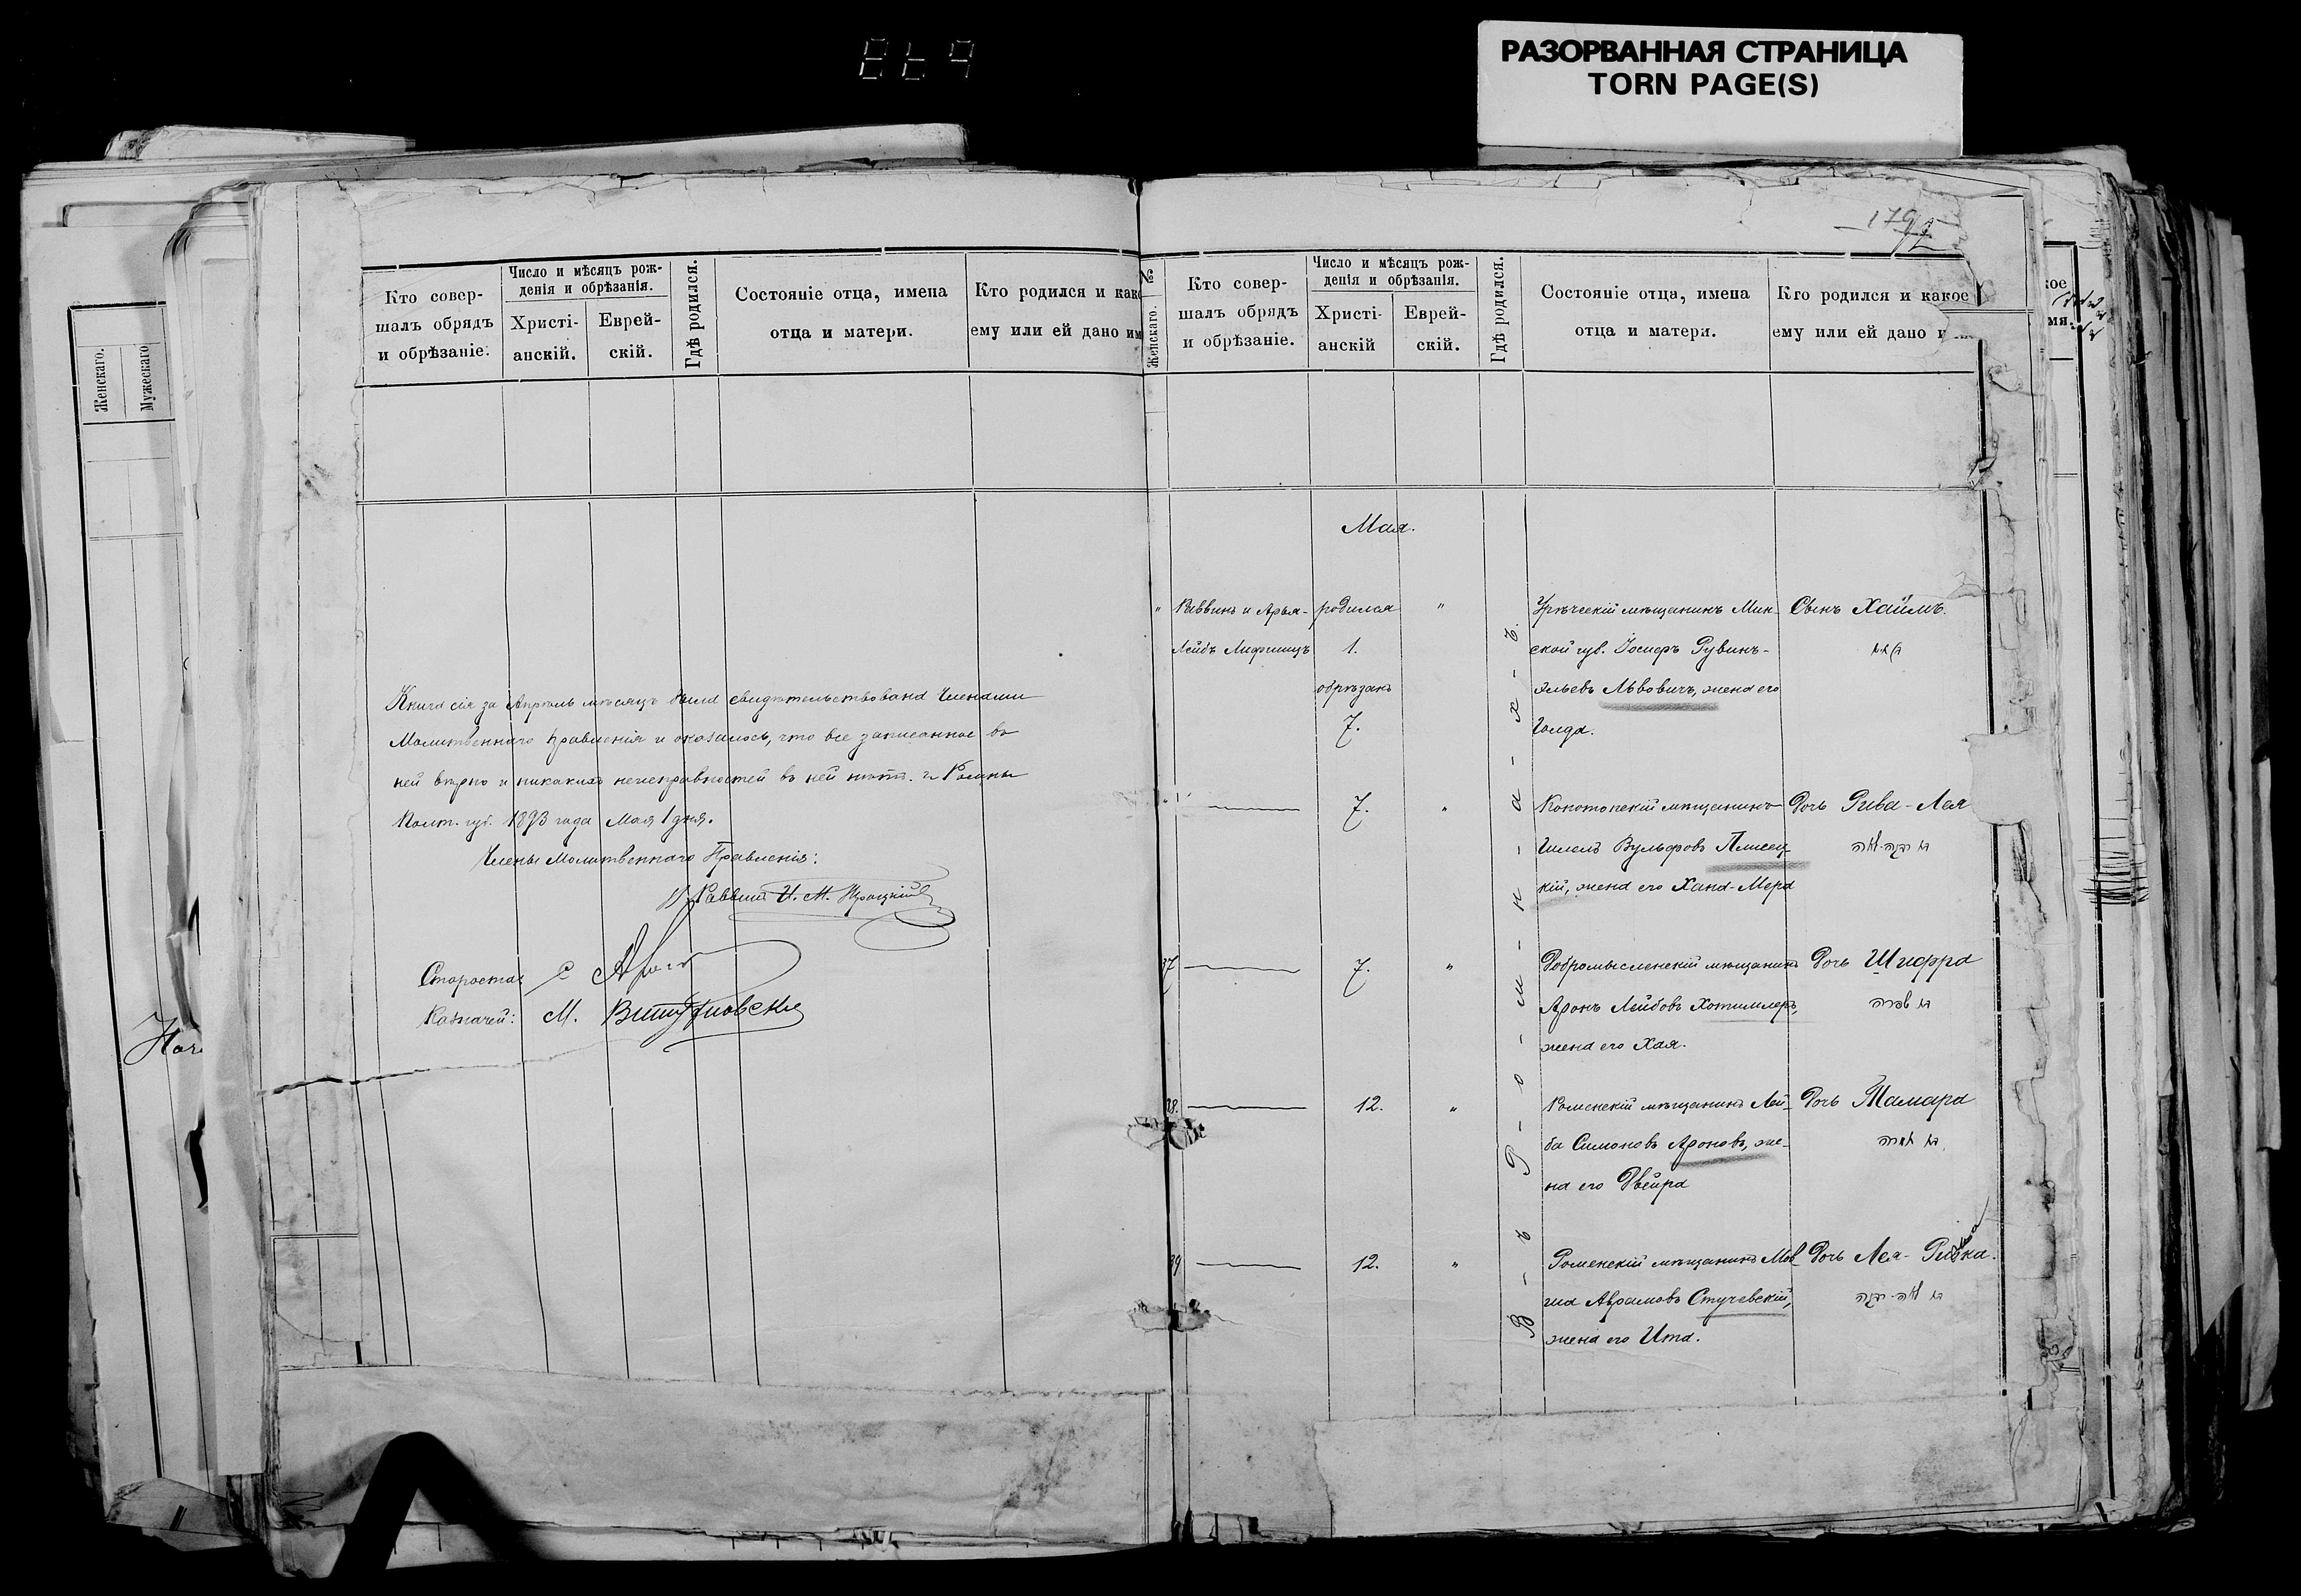 РАЗОРВАННАЯ СТРАНИЦА
TORN PAGE(S)
Женскаго.
Мужескаго
Кто совер-
шалъ обрядъ
и обрѣзаніе.
Число и мѣсяцъ рож-
денія и обрѣзанія.
Христі-
анскій.
Еврей-
скій.
Гдѣ родился.
Состояніе отца, имена
отца и матери.
Кто родился и как
ему или ей дано им
Книга сія за Апрѣль мѣсяцъ была свидѣтельствована Членами
Молитвеннаго Правленія и оказалось, что все записанное въ
ней вѣрно и никакихъ неисправностей въ ней нѣтъ. г. Ромны
Полт. губ. 1893 года Мая 1 дня.
Члены Молитвеннаго Правленія:
Раввинъ И. М.
Староста:
Казначей: М.
179
№
Женскаго.
Кто совер-
шалъ обрядъ
и обрѣзаніе.
Число и мѣсяцъ рож-
денія и обрѣзанія.
Христі-
анскій
Еврей-
скій.
Гдѣ родился.
Состояніе отца, имена
отца и матери.
Кто родился и какое
ему или ей дано
Мая.
В-ъ Р-о-м-н-а-х-ъ.
" Раввинъ и Арья-
Лейбъ Лифшицъ
родился
1.
обрѣзанъ
7.
"
Урѣчскій мѣщанинъ Мин-
ской губ. Іосифъ Рувинъ-
эльевъ Львовичъ, жена его
Голда.
Сынъ Хаимъ.
7.
"
Конотопскій мѣщанинъ
Шлемъ Вульфовъ Плисец-
кій, жена его Хана-Мера
Дочь Рива-Лея
37
7.
"
Добромысленскій мѣщанинъ
Аронъ Лейбовъ Хотимлеръ,
жена его Хая.
Дочь Шифра
בת שפרה
38.
12.
"
Роменскій мѣщанинъ Лей-
ба Симоновъ Ароновъ, же-
на его Двейра
Дочь Тамара
בת תמרה
39
12.
"
Роменскій мѣщанинъ Мов-
ша Абрамовъ Стучевскій,
жена его Ита.
Дочь Лея-Ривка.
בת לאה-רבקה